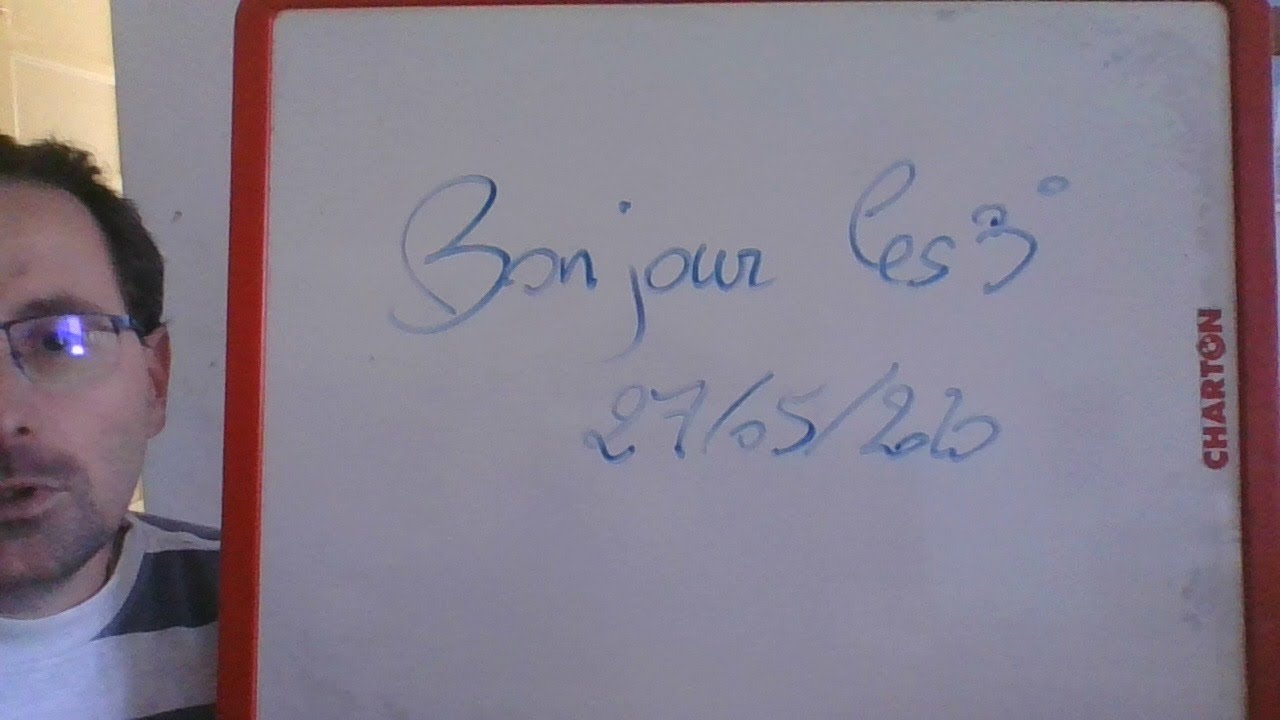 Bonjour les 3°
27/05/2020
CHARTON